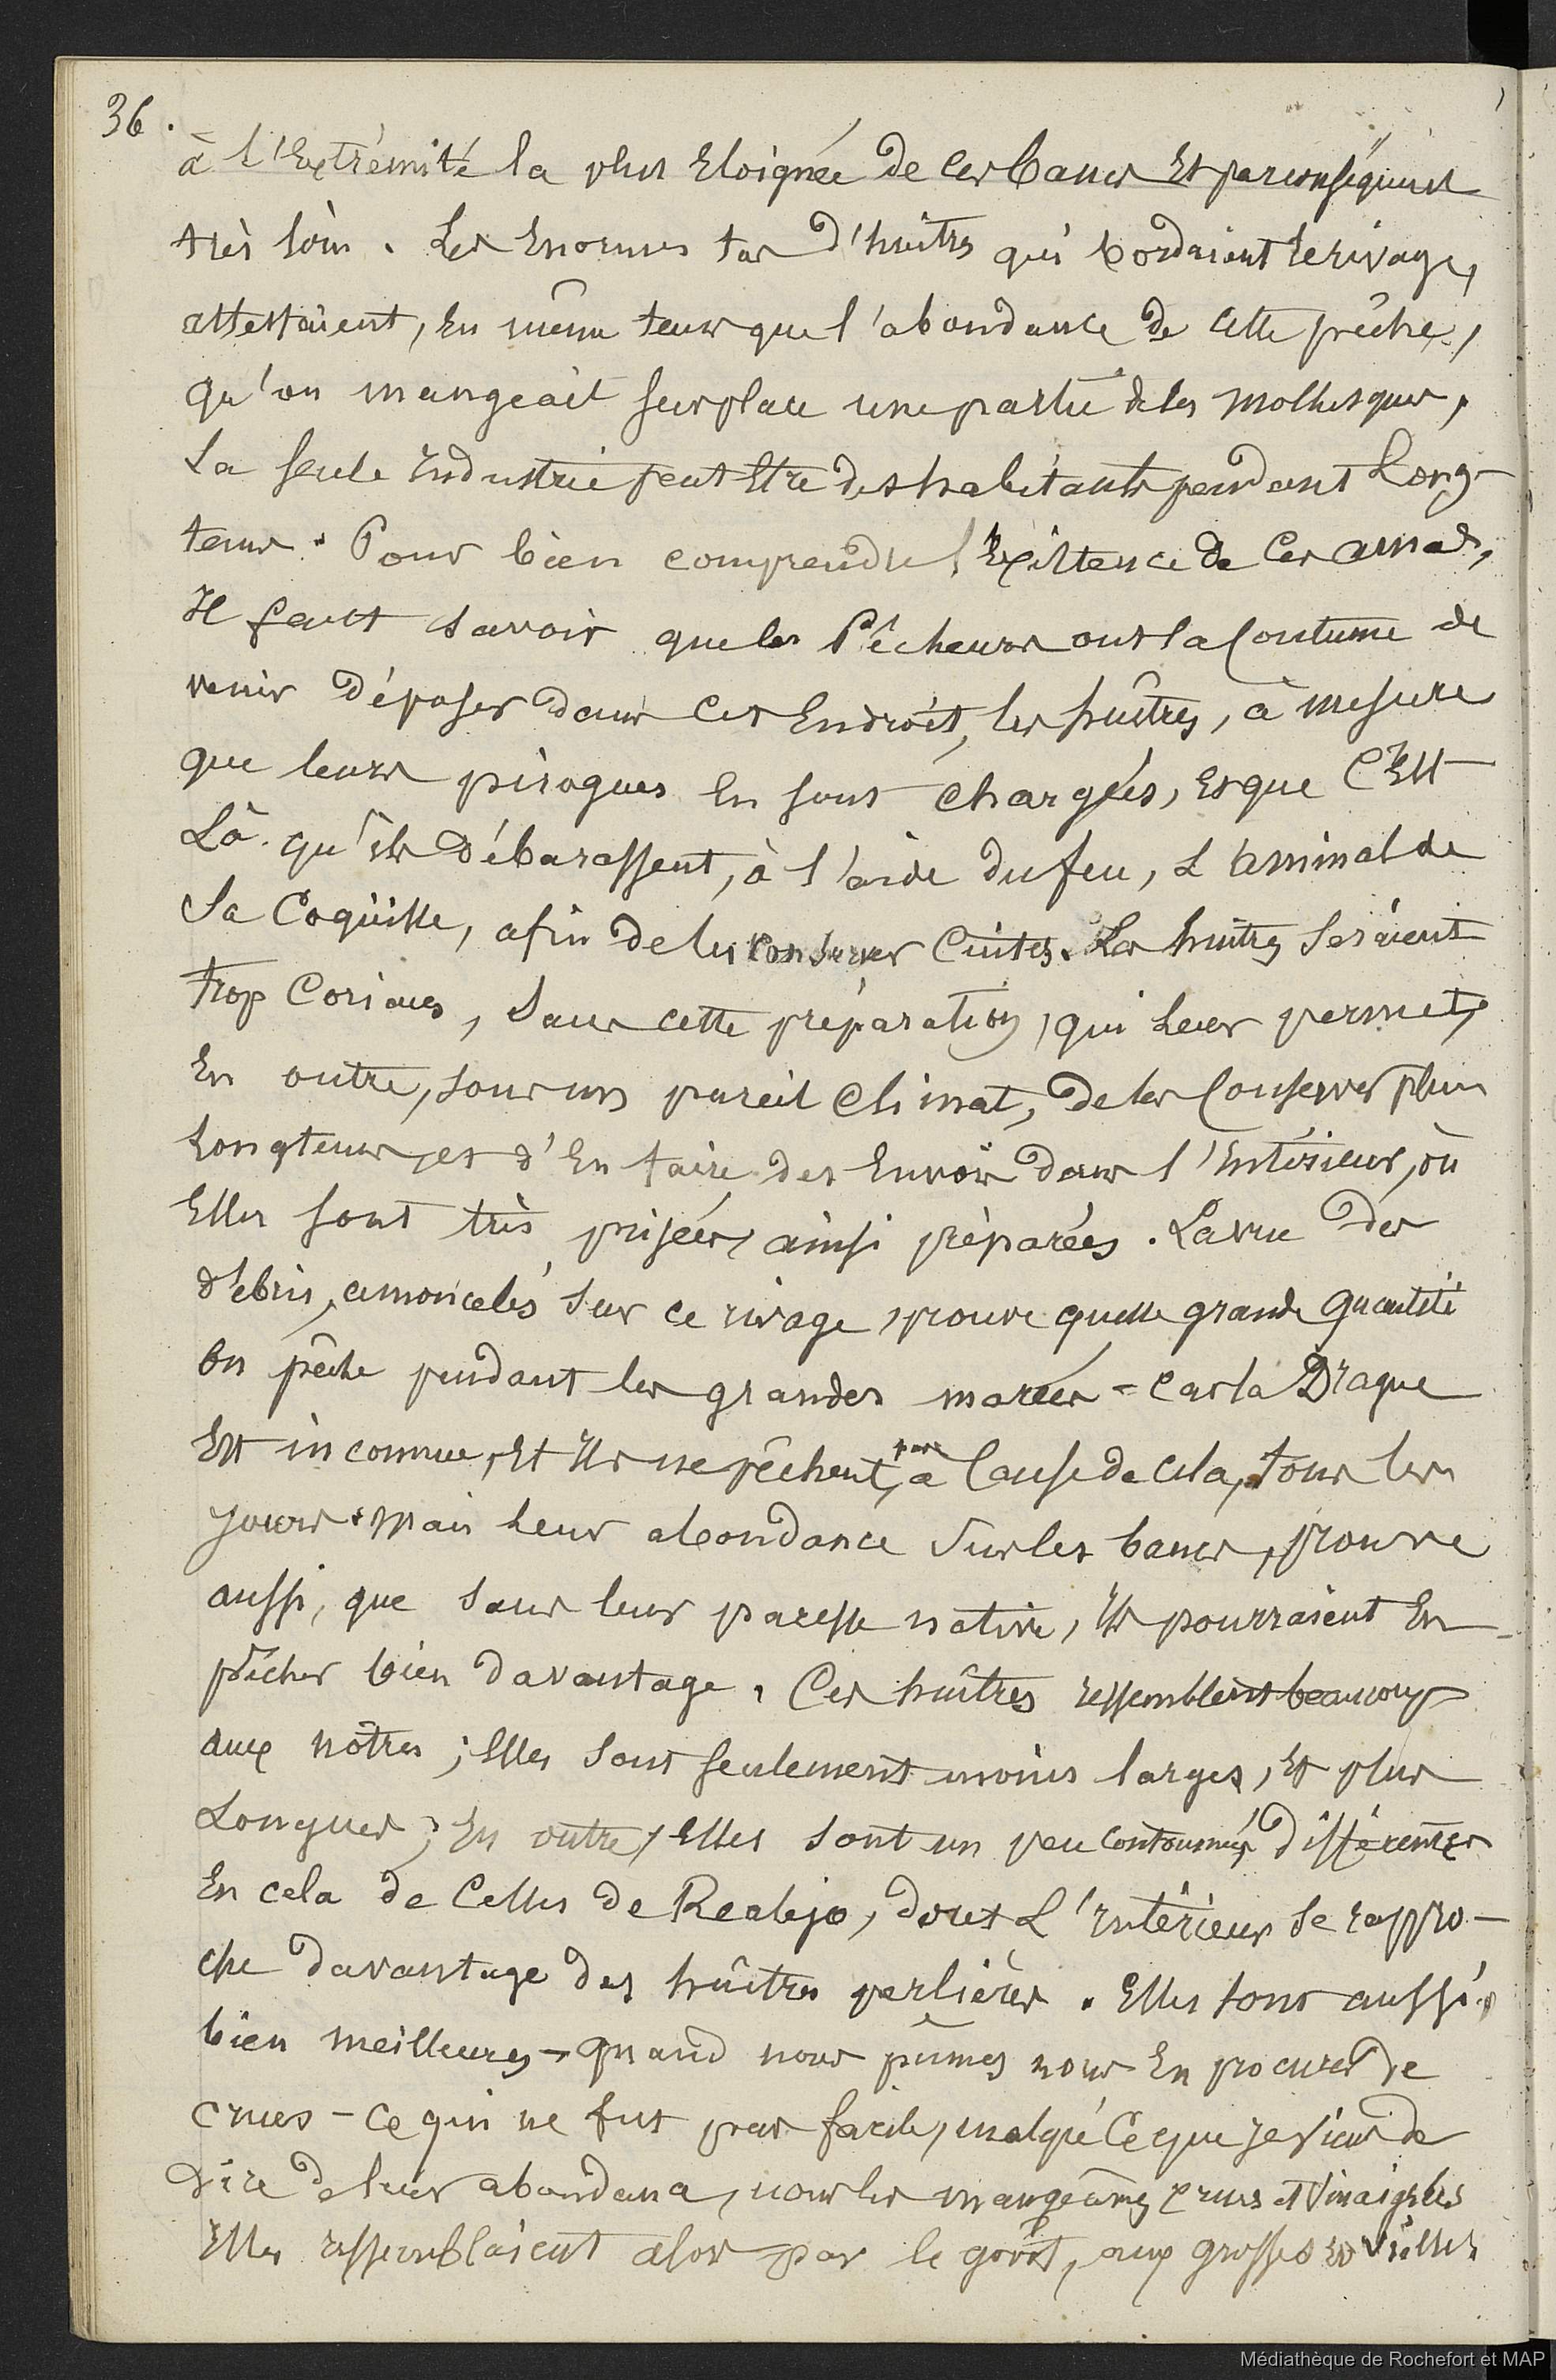 36.
à l'Extrêmité la plus Eloignée de ces bancs Et par conséquent
très loin. Les Enormes tas d'huîtres qui bordaient le rivage,
attestaient, En même tems que l'abondance de cette pêche,
qu'on mangeait sur place une partie de ces mollusques,
La seule industrie peut Etre des habitants pendant Long-
tems. Pour bien comprendre l'Existence de ces amas,
Il faut savoir que les Pêcheurs ont la Coutume de
venir déposer dans cet Endroit, les huîtres, à mesure
que leurs pirogues En sont chargées, Et que C'Est
Là qu'ils débarassent, à l'aide du feu, L'animal de
Sa Coquille, afin de les conserver Cuites. Les huitres seraient
trop Coriaces, sans cette préparation, qui leur permet,
En outre, sous un pareil climat, de les Conserver plus
Longtems, et d'En faire des Envois dans l'Intérieur, où
Elles sont très prisées, ainsi préparées. La vue des
débris, amoncelés sur ce rivage, prouve quelle grande quantité
On pêche pendant les grandes marées - car la Drague
Est inconnue, Et Ils ne pêchent, pas à Cause de cela, tous les
jours. Mais leur abondance sur les bancs, prouve
aussi, que sans leur paresse native, Ils pourraient En
pêcher bien davantage. Ces huîtres ressemblent beaucoup
aux nôtres ; Elles sont seulement moins larges, Et plus
Longues ; En outre, Elles sont un peu contournées, différentes
En cela de Celles de Realejo, dont L'intérieur se rappro-
che davantage des huîtres perlières. Elles sont aussi
bien meilleures - quand nous pûmes nous En procurer de
crues - ce qui ne fut pas facile, malgré Ce que je viens de
dire de leur abondance, nous les mangeâmes crues et Vinaigrées
Elles ressemblaient alors par le goût, aux grosses et vieilles
Médiathèque de Rochefort et MAP